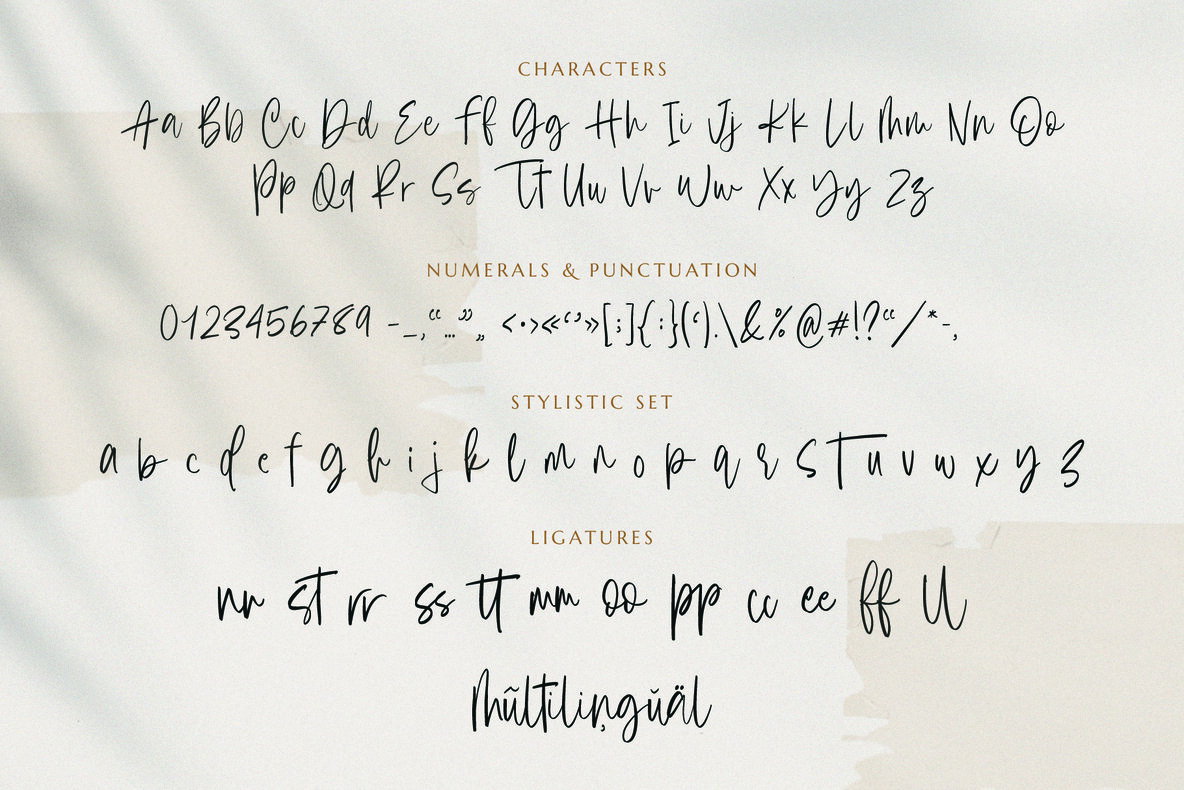 CHARACTERS
Aa Bb Cc Dd Ee Ff Gg Hh Ii Jj Kk Ll Mm Nn Oo
Pp Qq Rr Ss Tt Uu Vv Ww Xx Yy Zz
NUMERALS & PUNCTUATION
0123456789 -_,“…”„ <•>«‘’»[;]{:}(‘).\&%@#!?“/*-,
STYLISTIC SET
a b c d e f g h i j k l m n o p q r s t u v w x y z
LIGATURES
nn st rr ss tt mm oo pp cc ee ff ll
Mũltiliņgŭäl